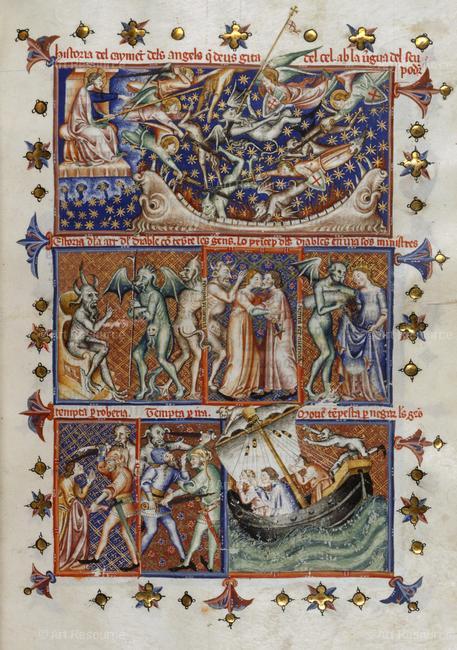 historia del caymēt dels angels q̄ deus gita del cel ab la ūgua del seu
poder
Estoria dla art dl diable cō tēpte les gens. lo pr̄ncep dls diables ēnuia sos ministres
tempta ꝑ roberia. Tempta ꝑ ira. Mouē tēpesta ꝑ negar ls gēs
© Art Resource
© Art Resource